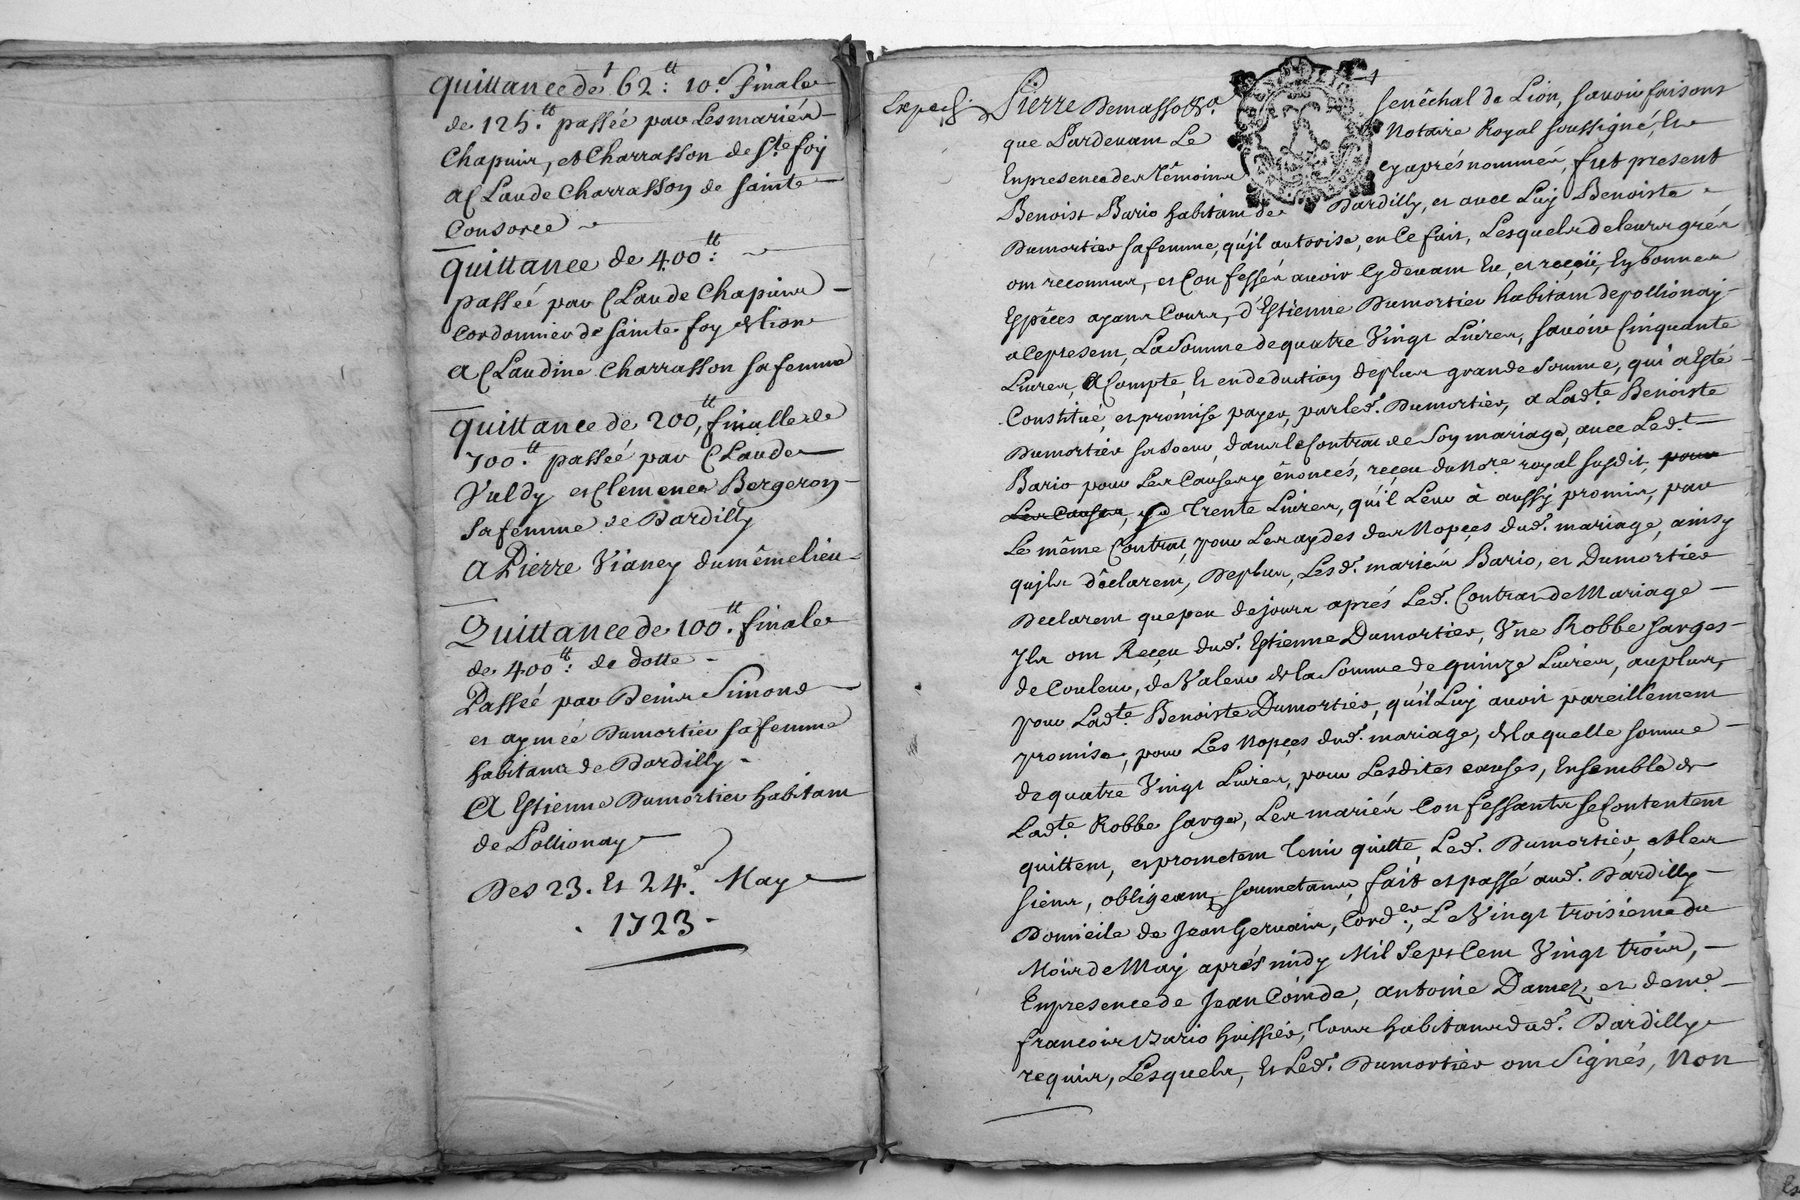 quittance de 62tt: 10s finale
de 125.tt passée par Les mariés
Chapuis, et Charrasson de Ste foy
a Claude Charrasson de Sainte
Consorce
quittance de 400tt:
passée par Claude Chapuis
Cordonnier de Sainte foy les Lion
a Claudine Charrasson sa femme
quittance de 200tt, finalle de
700.tt passée par Claude
Vuldy et Clemence Bergeron
sa femme de Dardilly
a Pierre Vianey du même lieu
Quittance de 100.tt finale
de 400tt: de dotte
Passée par Denis Simond
et aymée Dumortier sa femme
habitans de Dardilly
A Estienne Dumortier habitant
de Pollionay
Des 23. Et 24.e May
1723
Exped.
Pierre Demasso &a. Senêchal de Lion, Savoir faisons
que Pardevant Le Notaire Royal soussigné, Et
En presence des têmoins cy aprés nommés, fut present
Benoist Bario habitant de Dardilly, et avec Luy Benoiste
Dumortier sa femme, qu'jl autorise, en Ce fait, Lesquels de leurs grés
ont reconnus, et Confessés avoir Cy devant Eu, et reçeü, En bonnes
Espêces ayans Cours, d'Estienne Dumortier habitant de pollionay
a Ce present, La Somme de quatre Vingt Livres, Savoir Cinquante
Livres, A Compte, Et en deduction de plus grande Somme, qui a Esté
Constitué, et promise payer, par led. Dumortier, a Ladte. Benoiste
Dumortier sa soeur, dans le Contrat de Son mariage, avec Led.t
Bario pour Les Causes y ênoncés, reçeu du Nore. royal susdit, pour
Les Causes, Trente Livres, qu'il Leur à aussy promis, par
Le même Contrat, pour Les aydes des Nopçes dud. mariage, ainsy
qu'jls dêclarent, De plus, Lesd. mariés Bario, et Dumortier
Declarent que peu de jours aprés Led. Contrat de Mariage
Jls ont Reçeu dud. Estienne Dumortier, Vne Robbe sarges
de Couleur, de Valeur de la Somme de quinze Livres, au plus,
pour Ladte. Benoiste Dumortier, qu'il Luy avoit pareillement
promise, pour Les Nopçes dud. mariage, de laquelle somme
de quatre Vingt Livres, pour Lesdites causes, Ensemble de
Ladte. Robbe sarge, Les mariés Confessants se Contentent
quittent, et prometent Tenir quitte, Led. Dumortier, et les
siens, obligeant, soumetants, fait et passé aud. Dardilly
Domicile de Jean Gervais, Corder., Le Vingt troisieme du
Mois de May aprés midy Mil Sept Cent Vingt trois,
En presence de Jean Coinde, antoine Damez et deme.
francois Bario huissier, Tous habitans dud. Dardilly
requis, Lesquels, Et Led. Dumortier ont Signés, Non